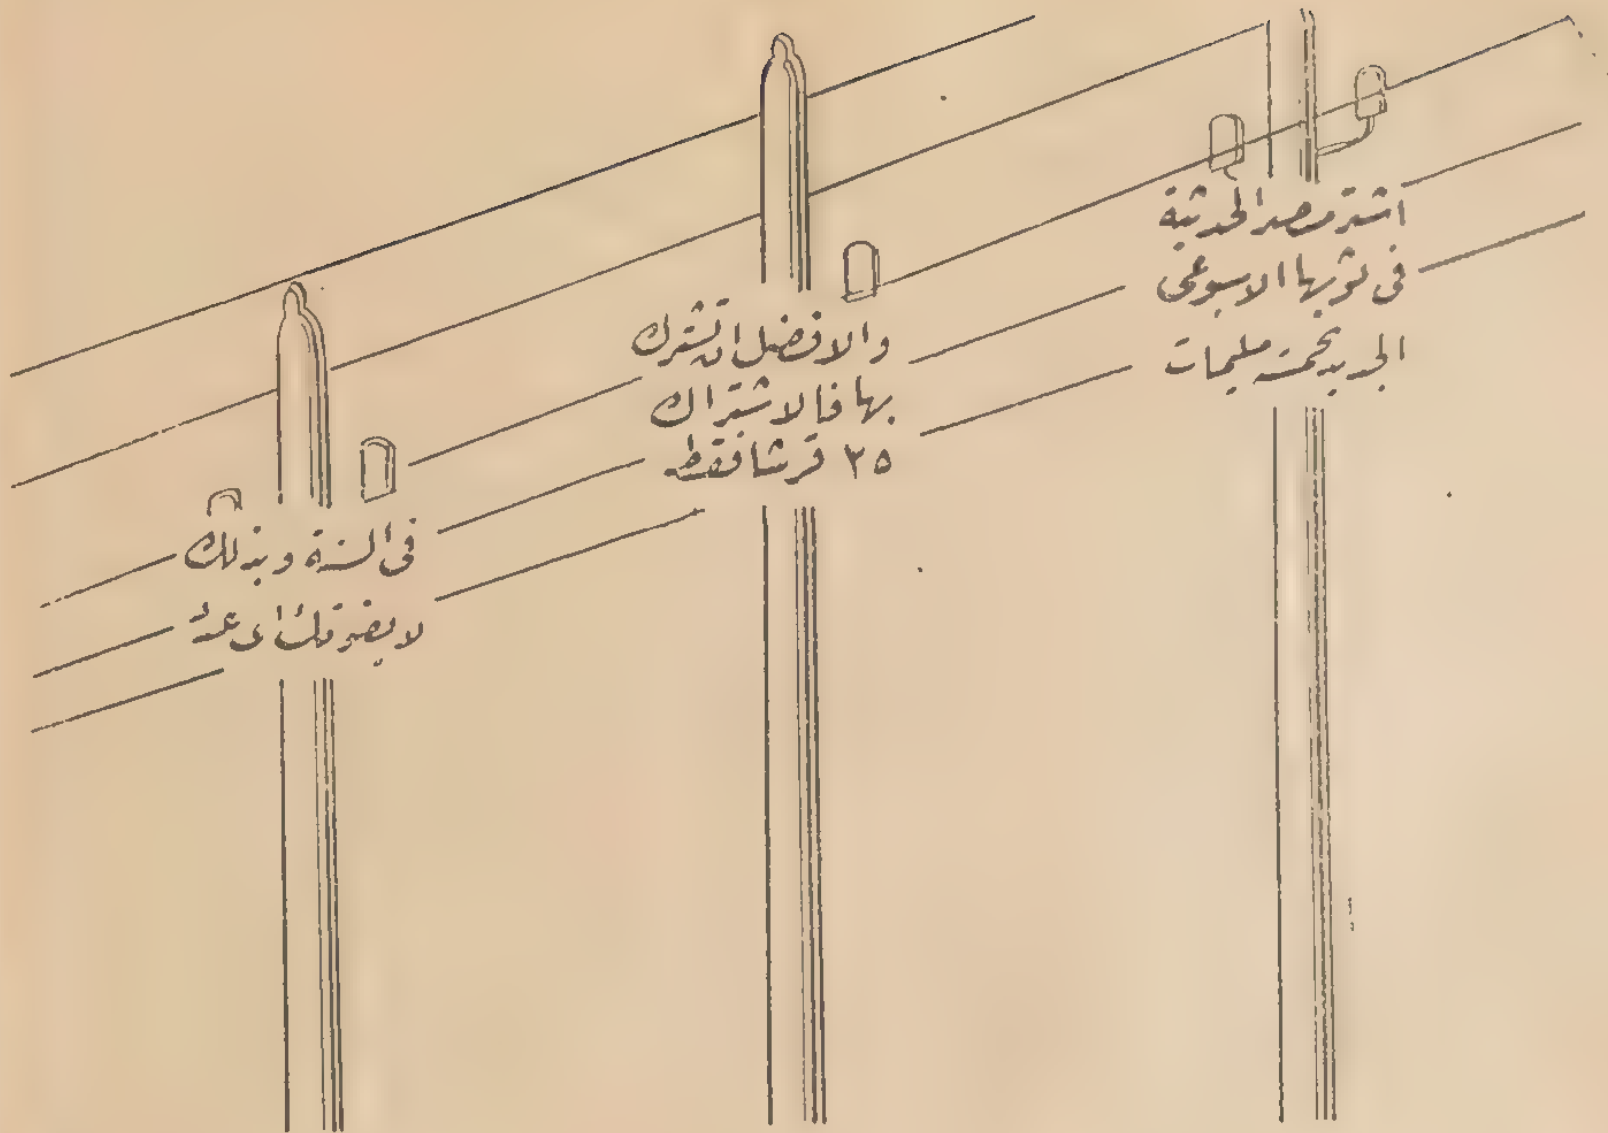 اشتر مصر الحديثة
فى ثوبها الاسبوعى
الجديد بخمسة مليمات
والافضل ان تشترك
بها فالاشتراك
٢٥ قرشا فقط
فى السنة وبذلك
لا يفوتك اى عدد